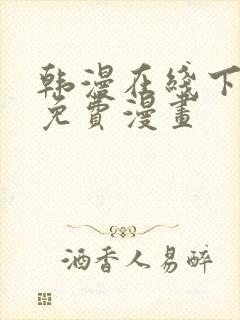 韩漫在线下
免费漫画
酒香人易醉